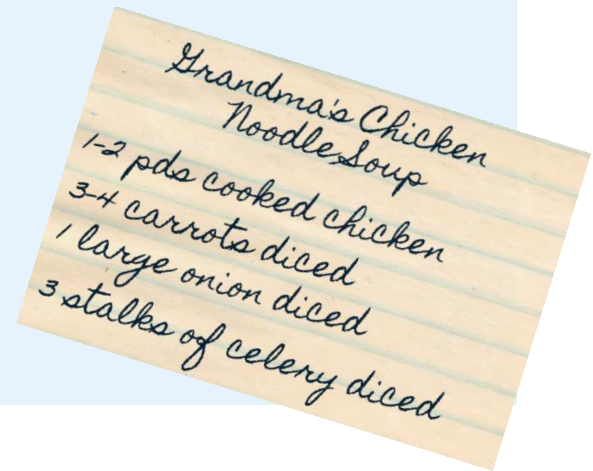 Grandma's Chicken
Noodle Soup
1-2 pds cooked chicken
3-4 carrots diced
1 large onion diced
3 stalks of celery diced